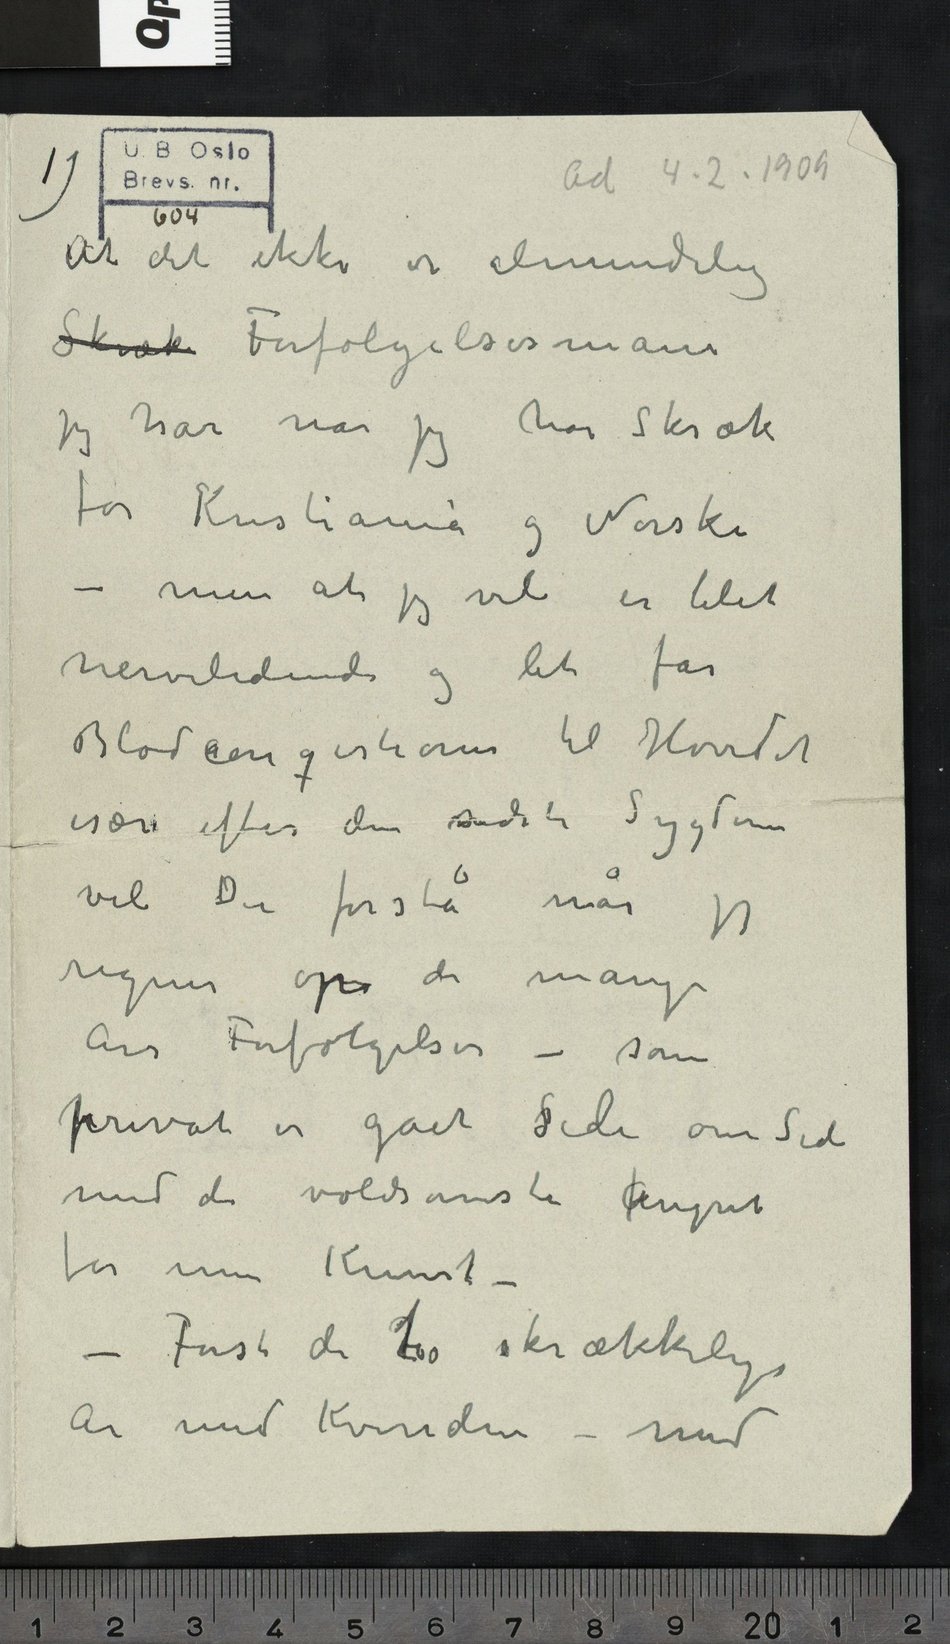 Op
1)
U. B Oslo
Brevs. nr.
604
ad 4.2.1909
At det ikke er almindelig
Skræk Forfølgelsesmani
jeg har når jeg har Skræk
for Kristiania og Norske
– men at jeg vel er blet
nervelidende og let får
Blodcongestioner til Hovedet
især efter den sidste Sygdom
vil De forstå når jeg
regner op de mange
Års Forfølgelser – som
privat er gået Side om Side
med de voldsomste Angreb
for min Kunst –
– Først de to skrækkelige
År med Kvinden – med
1 2 3 4 5 6 7 8 9 20 1 2